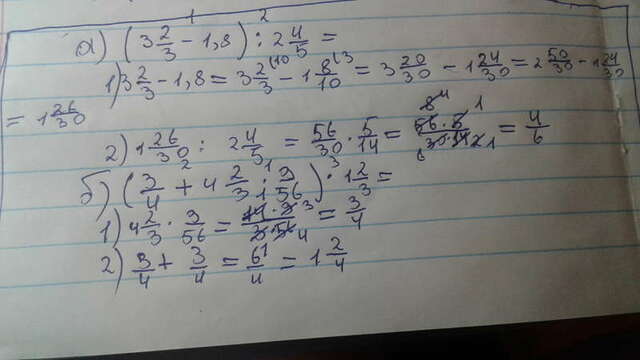 1 2
а) (3 2/3 - 1,8) : 2 4/5 =
1) 3 2/3 - 1,8 = 3 2/3 (10 - 1 8/10 (3 = 3 20/30 - 1 24/30 = 2 50/30 - 1 24/30
= 1 26/30
2) 1 26/30 : 2 4/5 = 56/30 · 5/14 = 56·5/30·14 = 4/6
б) (3/4 + 4 2/3 · 9/56) · 1 2/3 =
1) 4 2/3 · 9/56 = 14·9/3·56 = 3/4
2) 3/4 + 3/4 = 6/4 = 1 2/4